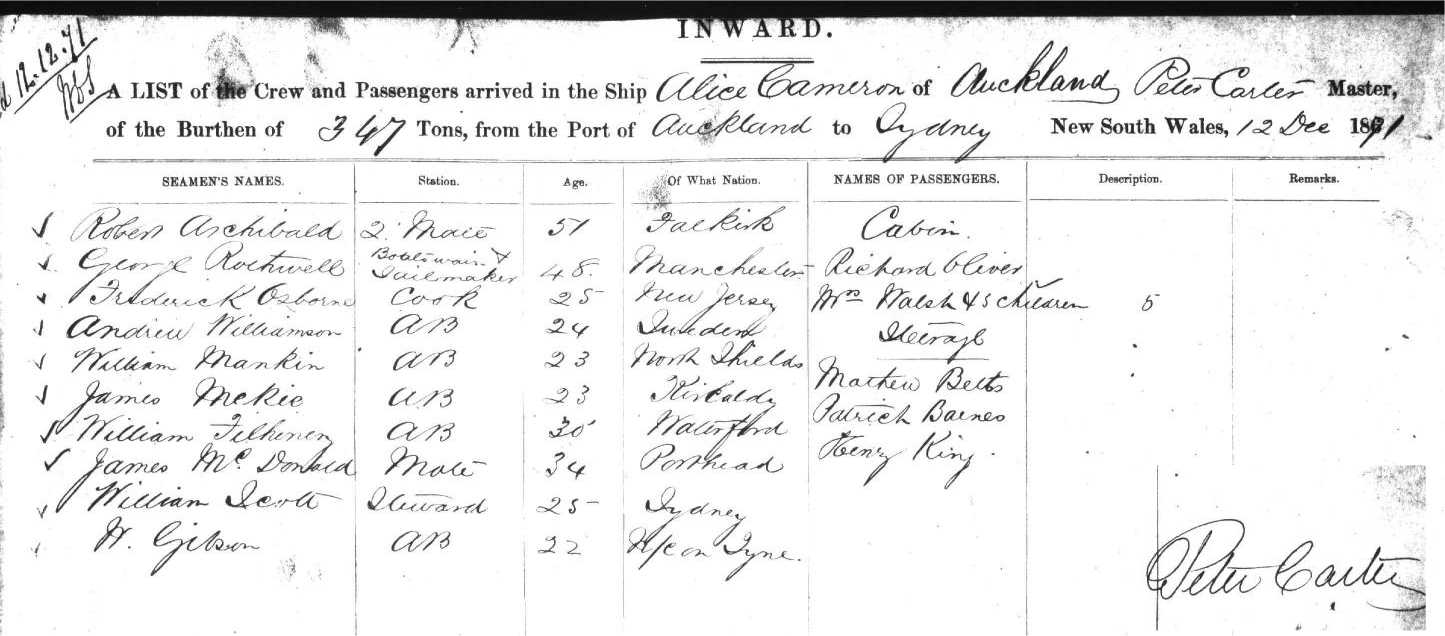 INWARD.
12.12.71
A LIST of the Crew and Passengers arrived in the Ship Alice Cameron of Auckland Peter Carter Master,
of the Burthen of 347 Tons, from the Port of Auckland to Sydney New South Wales, 12 Dec 1871
SEAMEN'S NAMES. Station. Age. Of What Nation. NAMES OF PASSENGERS. Description. Remarks.
Robert Archibald 2 Mate 51 Falkirk Cabin.
George Rothwell Boatswain & Sailmaker 48. Manchester Richard Oliver
Frederick Osborne Cook 25 New Jersey Mrs Walsh & 5 children 5
Andrew Williamson AB 24 Sweden Steerage
William Mankin AB 23 North Shields
James McKie AB 23 Kirkaldy Mathew Betts
William AB 30 Waterford Patrick Barnes
James McDonald Mate 34 Henry King.
William Scott Steward 25 Sydney
H. Gibson AB 22 N/C on Tyne.
Peter Carter